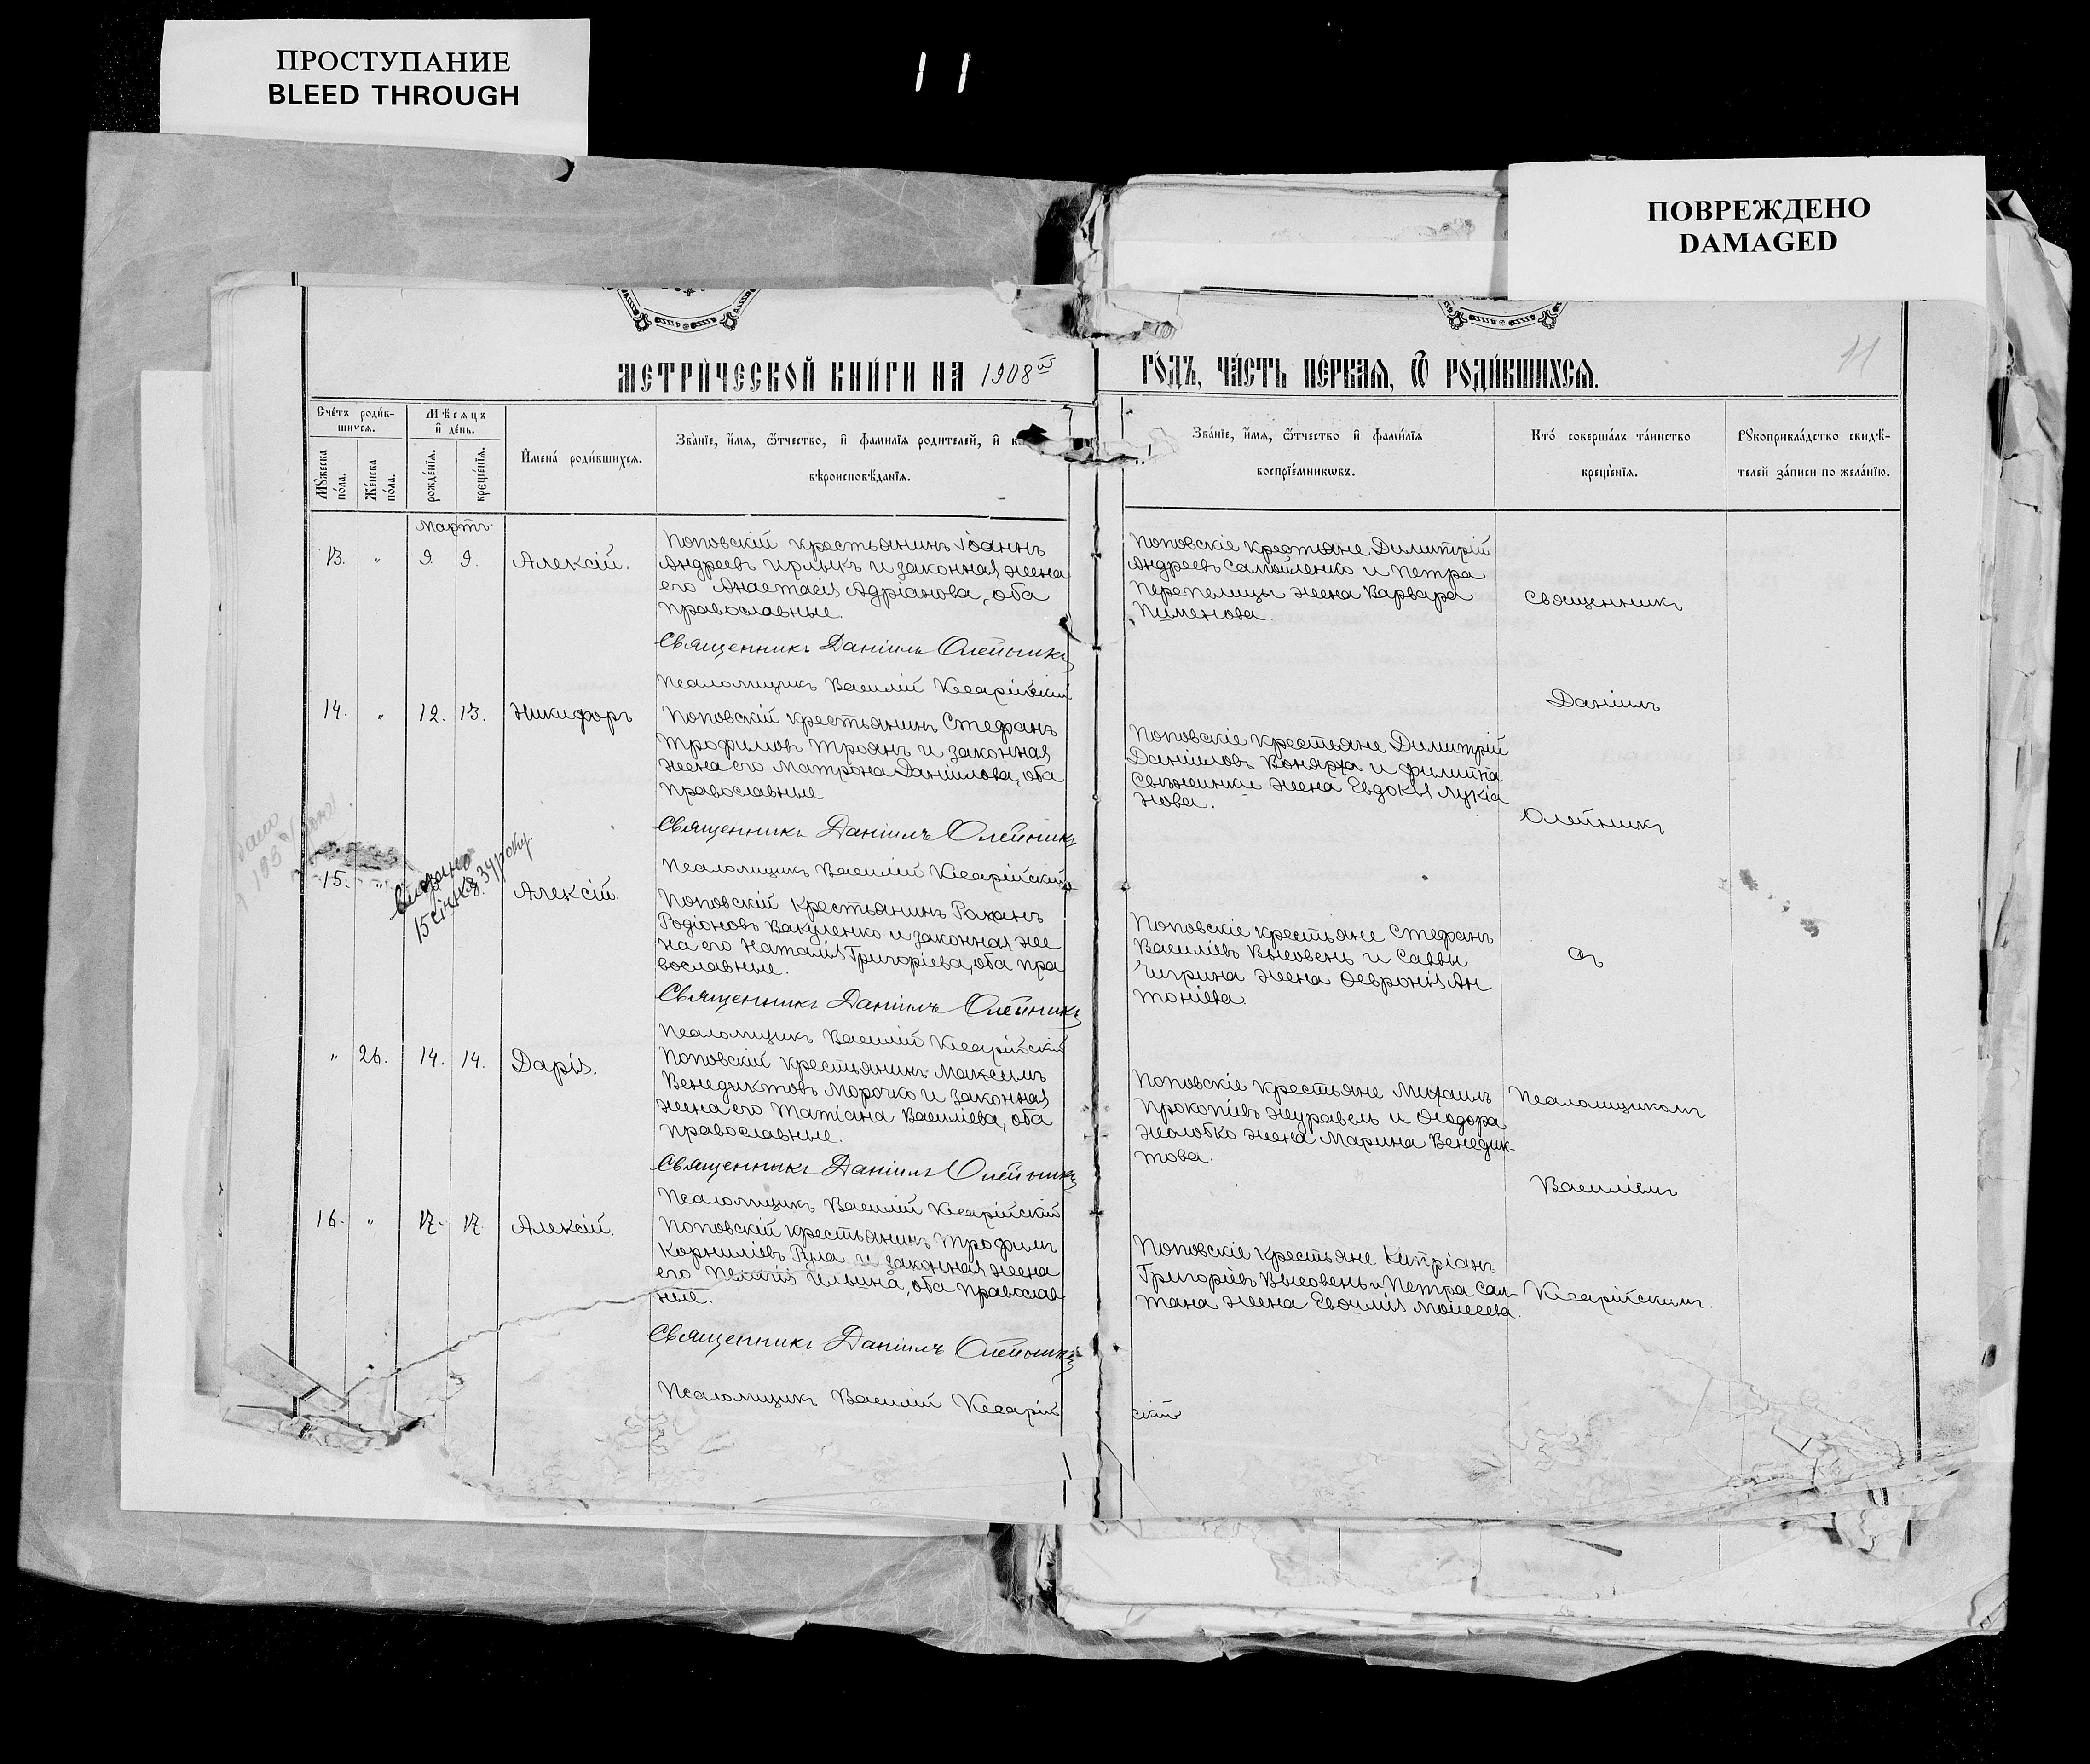 ПРОСТУПАНИЕ
BLEED THROUGH
11
ПОВРЕЖДЕНО
DAMAGED
МЕТРИ́ЧЕСКОЙ КНИ́ГИ НА 1908й
ГО́ДЪ, ЧА́СТЬ ПЕ́РВАЯ, Ѿ РОДИ́ВШИХСЯ.
11
Сче́тъ роди́в-
шихся.
Мѣ́сяцъ
и҆ де́нь.
И҆мена́ роди́вшихся.
Зва́нїе, и҆́мя, ѻ҆́тчество, и҆ фами́лїа роди́телей, и҆
вѣроисповѣ́данїя.
Мꙋ́жеска
по́ла.
Же́нска
по́ла.
рожде́нїя.
креще́нїя.
Зва́нїе, и҆́мя, ѻ҆́тчество и҆ фами́лїя
воспрїе́мникѡвъ.
Кто̀ соверша́лъ та́инство
креще́нїя.
Рꙋкоприкла́дство свидѣ́-
телей за́писи по жела́нїю.
Мартъ
13. " 9. 9. Алексій.
Поповскій крестьянинъ Іоаннъ
Андреевъ Ирлыкъ и законная жена
его Анастасія Адріанова, оба
православные.
Священникъ Даніилъ Олейникъ
Псаломщикъ Василій Кесарійскій
Поповскіе крестьяне Димитрій
Андреевъ Самойленко и Петра
Перепелицы жена Варвара
Пименова.
Священникъ
14. " 12. 13. Никифоръ
Поповскій крестьянинъ Стефанъ
Трофимовъ Троянъ и законная
жена его Матрона Даніилова, оба
православные
Священникъ Даніилъ Олейникъ
Псаломщикъ Василій Кесарійскій
Даніилъ
Поповскіе крестьяне Димитрій
Даніиловъ Бонярха и Филиппа
жена Евдокія Лукіа
нова.
Олейникъ
15. " Алексій.
видано
15 січня 34 року
Поповскій крестьянинъ Романъ
Родіоновъ Вакуленко и законная же
на его Наталія Григоріева, оба пра
вославные.
Священникъ Даніилъ Олейникъ
Псаломщикъ Василій Кесарійскій
Поповскіе крестьяне Стефанъ
Василіевъ Высовень и Саввы
Чигрина жена Ѳевронія Ан
тоніева
съ
" 26. 14. 14. Дарія.
Поповскій крестьянинъ Максимъ
Венедиктовъ Морочко и законная
жена его Татіана Василіева, оба
православные.
Священникъ Даніилъ Олейникъ
Псаломщикъ Василій Кесарійскій
Поповскіе крестьяне Михаилъ
Прокопіевъ Журавель и Ѳеодора
Жолобко жена Марина Венедик-
това.
Псаломщикомъ
Василіемъ
16. " 17. 17. Алексій.
Поповскій крестьянинъ Трофимъ
Корниліевъ Рула и законная жена
его Пелагія Ильина, оба православ
ные.
Священникъ Даніилъ Олейникъ
Псаломщикъ Василій Кесарій
скій
Поповскіе крестьяне Кипріанъ
Григоріевъ Высовень и Петра Сал-
тана жена Моисеева.
Кесарійскимъ.